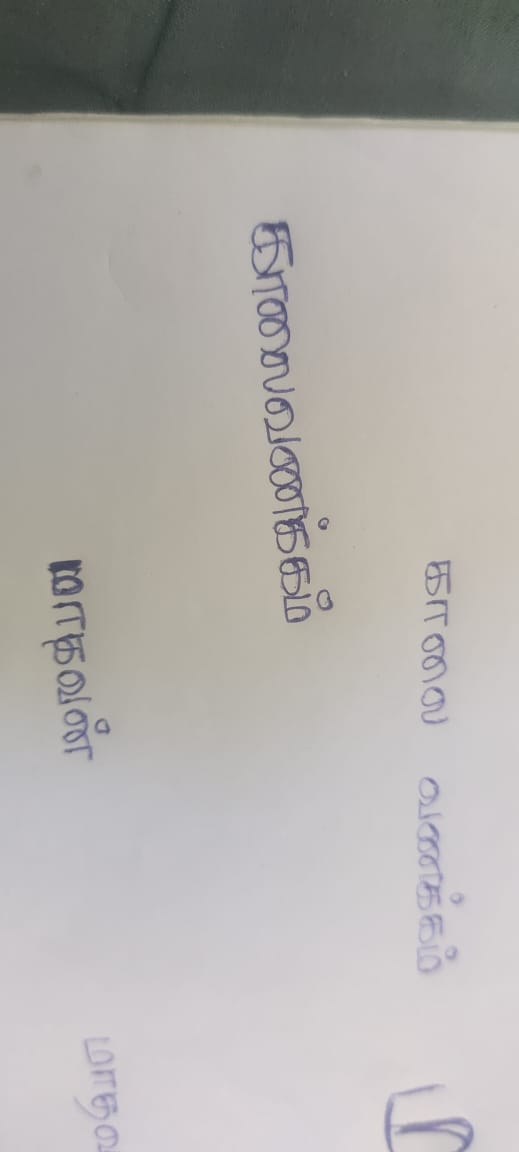 காலை வணக்கம்
காலைவணக்கம்
மாதவன்